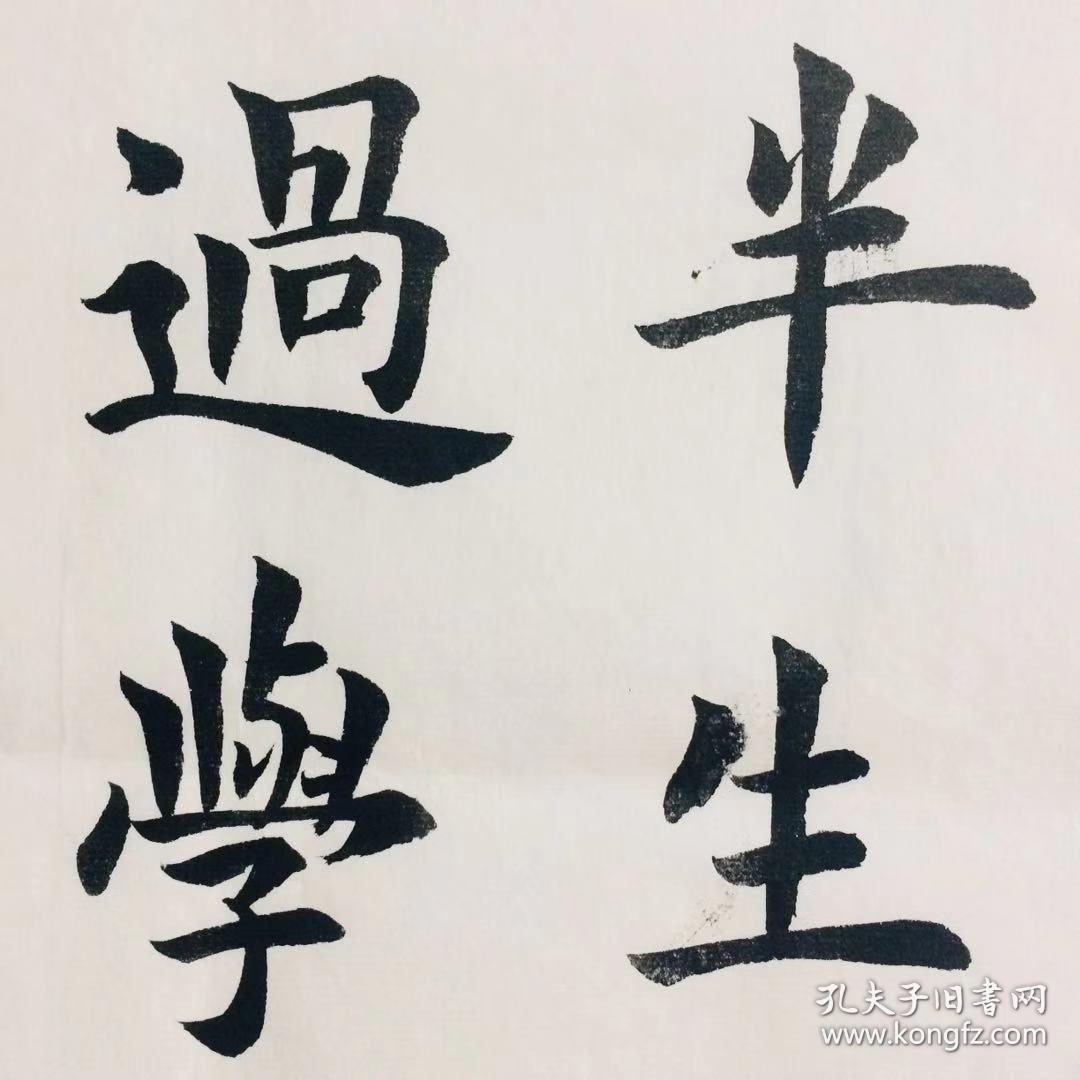 半生
過學
孔夫子旧書网
www.kongfz.com